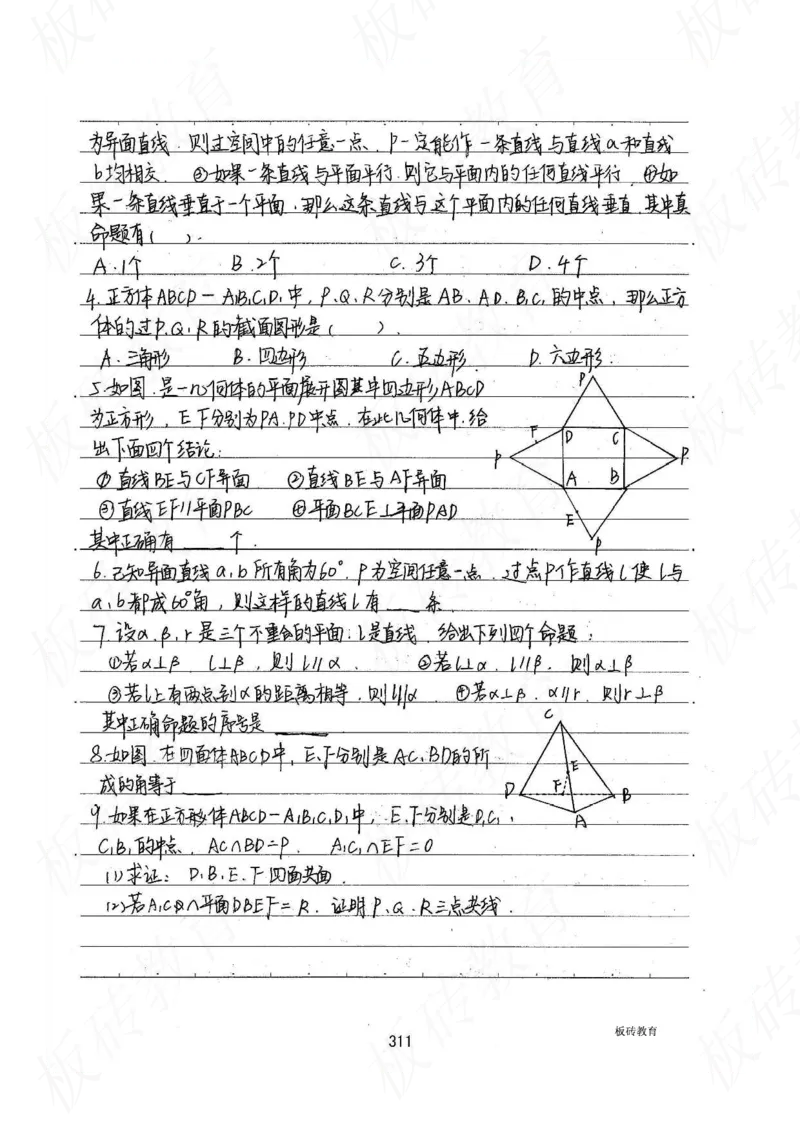 为异面直线.则过空间中的任意一点、P一定能作一条直线与直线a和直线
b均相交. ③如果一条直线与平面平行.则它与平面内的任何直线平行.④如
果一条直线垂直于一个平面.那么这条直线与这个平面内的任何直线垂直.其中真
命题有( ).
A.1个 B.2个 C.3个 D.4个
4.正方体ABCD-A₁B₁C₁D₁中,P、Q、R分别是AB、AD、B₁C₁的中点,那么正方
体的过P、Q、R的截面图形是( ).
A.三角形 B.四边形 C.五边形. D.六边形.
5.如图.是一几何体的平面展开图其中四边形ABCD
为正方形,E F分别为PA.PD中点.在此几何体中.给
出下面四个结论:
①直线BE与CF异面 ②直线BE与AF异面
③直线EF//平面PBC ④平面BCE⊥平面PAD
其中正确有____个.
P
F
D
C
P
P
A
B
E
P
6.已知异面直线a,b所有角为60°.P为空间任意一点.过点P作直线l使l与
a,b都成60°角,则这样的直线l有____条.
7.设α.β,r是三个不重合的平面.l是直线.给出下列四个命题:
①若α⊥β,l⊥β,则l//α. ②若l⊥α.l//β.则α⊥β
③若l上有两点到α的距离相等.则l//α ④若α⊥β.α//r.则r⊥β
其中正确命题的序号是____
8.如图.在四面体ABCD中,E、F分别是AC、BD的所
成的角等于____
C
E
D
F
B
A
9.如果在正方体ABCD-A₁B₁C₁D₁中,E.F分别是D₁C₁,
C₁B₁的中点.AC∩BD=P.A₁C₁∩EF=O
(1)求证:D、B、E、F四面共面.
(2)若A₁C∩平面DBEF=R.证明P、Q、R三点共线.
311
板砖教育